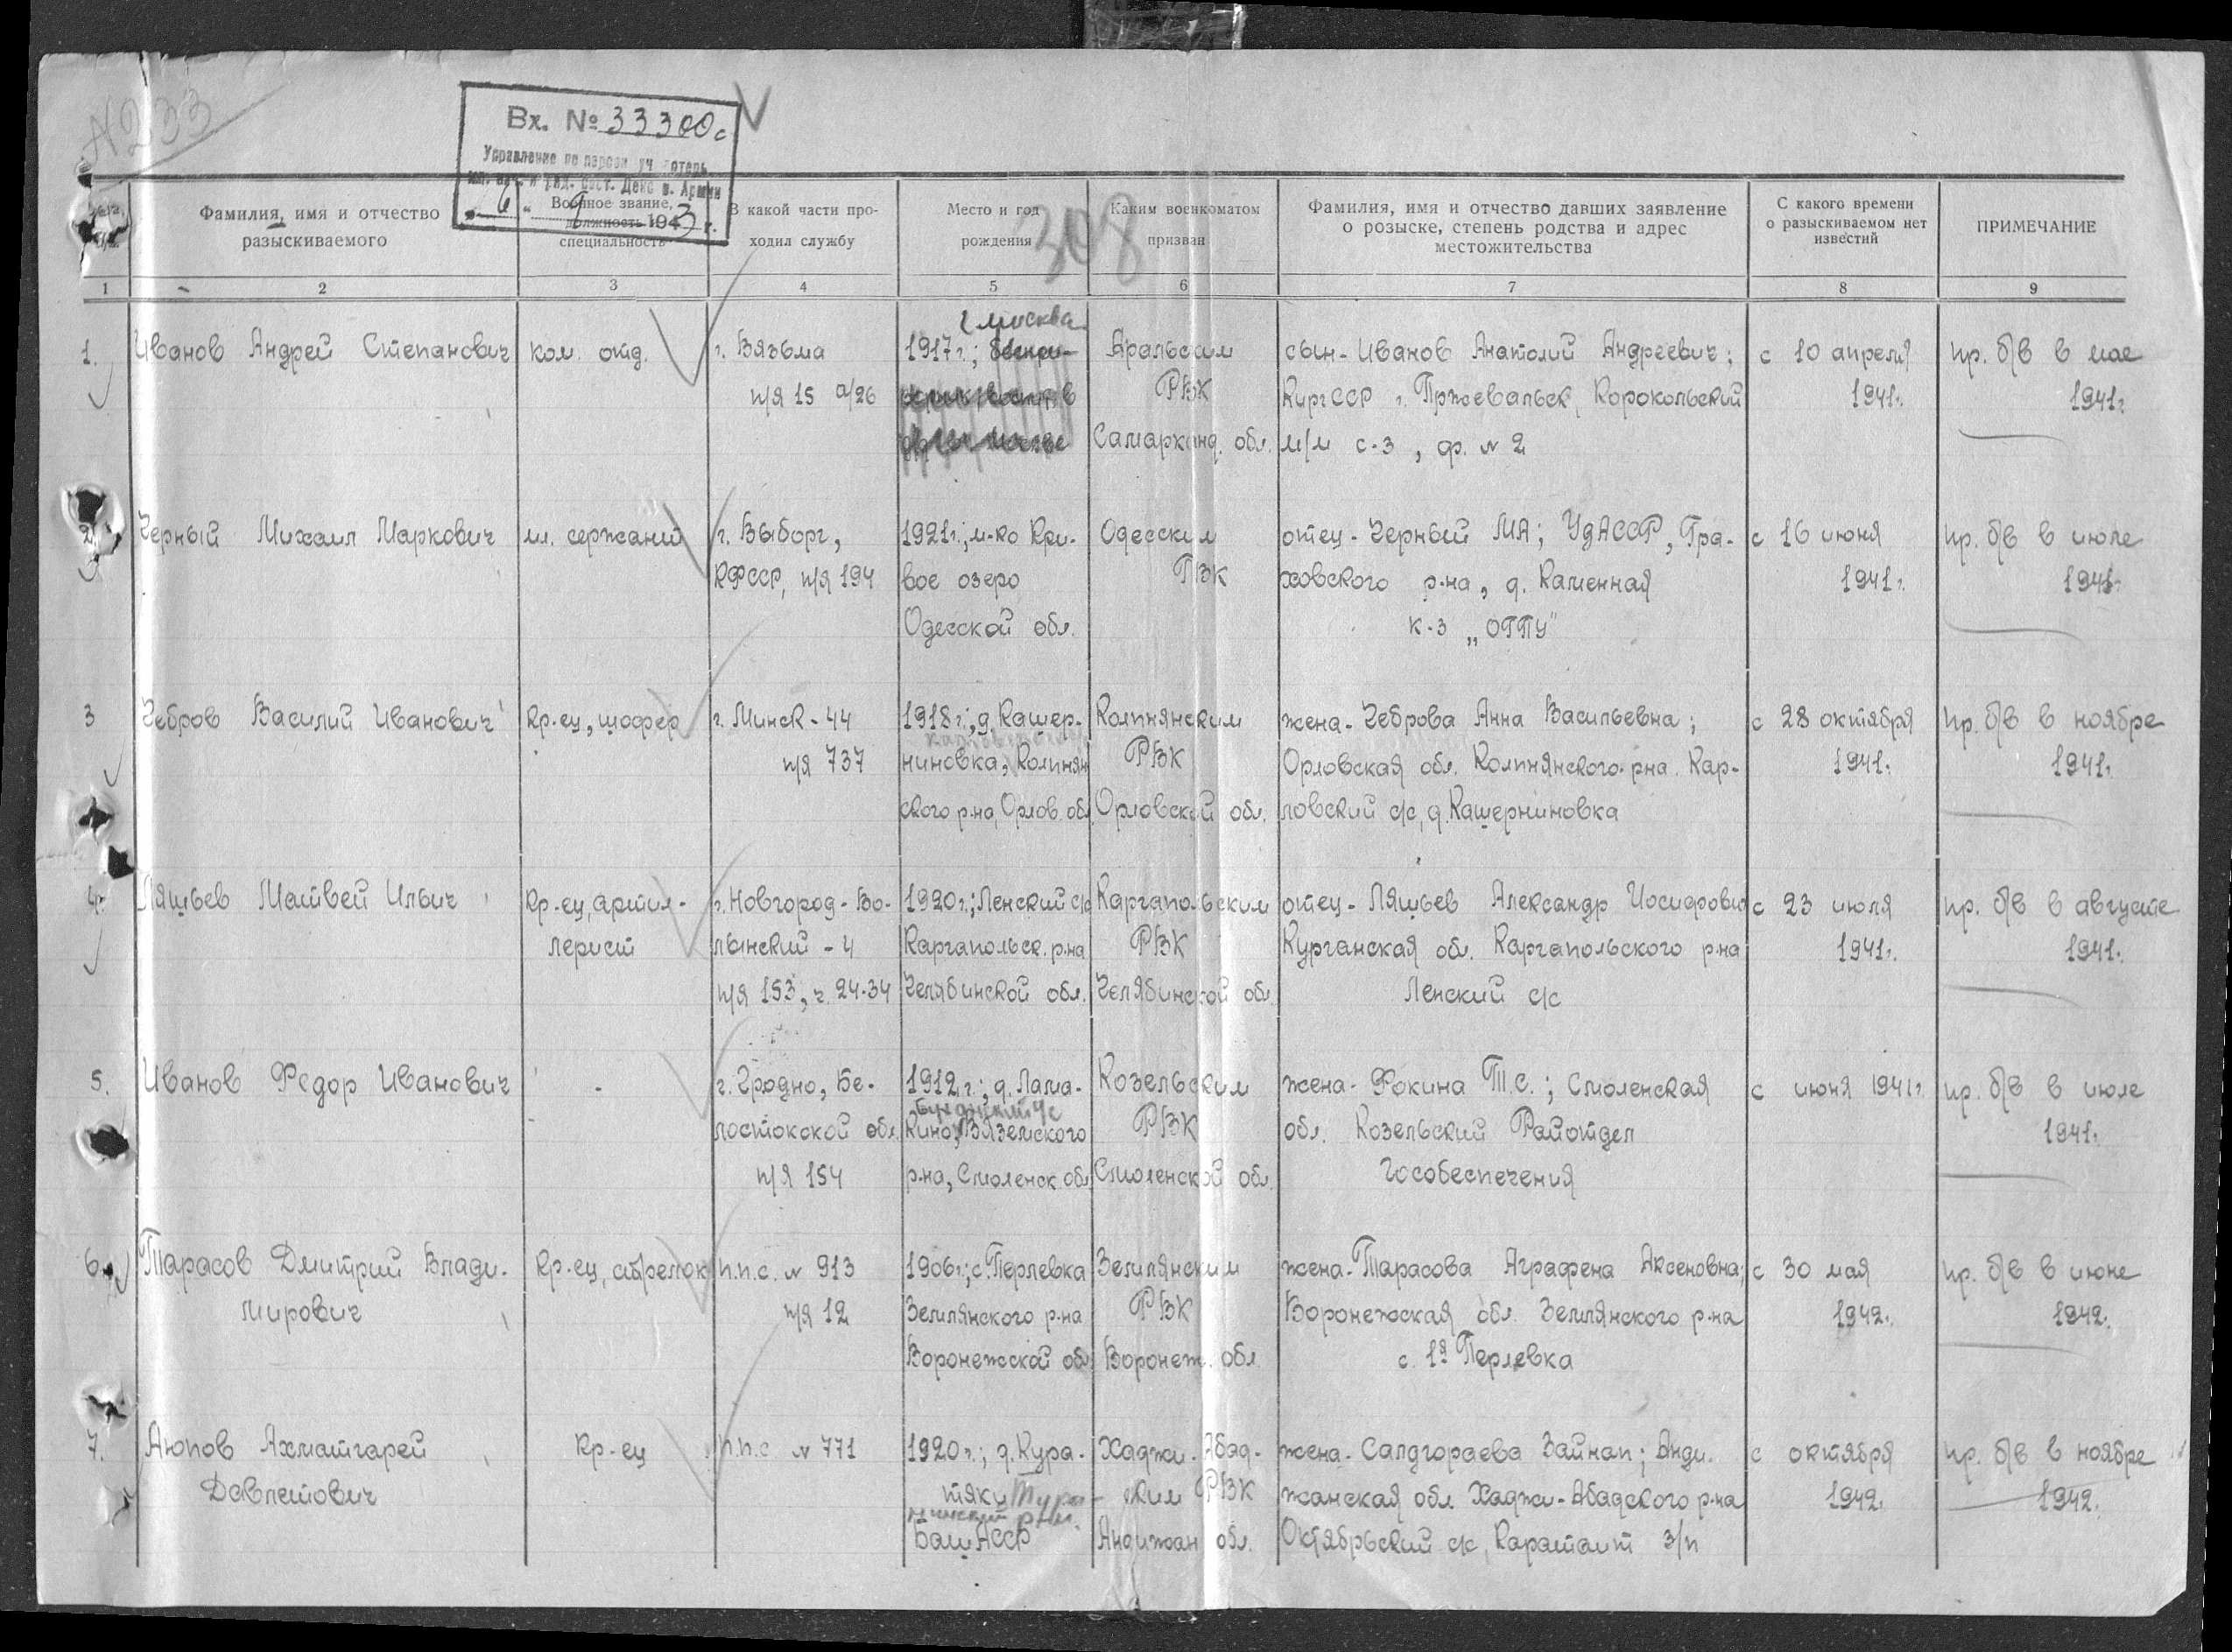 №233
Вх. № 33300с
Управление по персон. уч. потерь
и ряд. сост. Действ. Армии
"6" 9 1943 г.
308
Фамилия, имя и отчество
разыскиваемого
Военное звание,
должность
специальность
В какой части про-
ходил службу
Место и год
рождения
Каким военкоматом
призван
Фамилия, имя и отчество давших заявление
о розыске, степень родства и адрес
местожительства
С какого времени
о разыскиваемом нет
известий
ПРИМЕЧАНИЕ
1 2 3 4 5 6 7 8 9
1. Иванов Андрей Степанович
ком. отд.
г. Вязьма
п/я 15 а/26
г Москва
1917г.;
Аральским
РВК
Самарканд. обл.
сын - Иванов Анатолий Андреевич;
КиргССР г. Пржевальск, Корокольский
м/м с-з, ф. № 2
с 10 апреля
1941г.
пр. б/в в мае
1941г.
2. Черный Михаил Маркович
мл. сержант
г. Выборг,
КФССР, п/я 194
1921г.; м-ко Кри-
вое озеро
Одесской обл.
Одесским
ГВК
отец - Черный МА; УдАССР, Гра-
ховского р-на, д. Каменная
к-з „ОГПУ"
с 16 июня
1941г.
пр. б/в в июле
1941г.
3 Чебров Василий Иванович
кр-ец, шофер
г. Минск - 44
п/я 737
1918г.; д. Кашер-
ниновка, Колпнян
ского р-на, Орлов. обл.
Колпнянским
РВК
Орловской обл.
жена - Чеброва Анна Васильевна;
Орловская обл. Колпнянского р-на. Кар-
ловский с/с, д. Кашерниновка
с 28 октября
1941г.
пр. б/в в ноябре
1941г.
4. Ляшьев Матвей Ильич
кр-ец, артил-
лерист
г. Новгород-Во-
лынский - 4
п/я 153, ч. 24-34
1920г.; Ленский с/с
Каргапольск. р-на
Челябинской обл.
Каргапольским
РВК
Челябинской обл.
отец - Ляшьев Александр Иосифович
Курганская обл. Каргапольского р-на
Ленский с/с
с 23 июля
1941г.
пр. б/в в августе
1941г.
5. Иванов Федор Иванович
-
г. Гродно, Бе-
лостокской обл.
п/я 154
1912г.; д. Лама-
кино, Вяземского
р-на, Смоленск обл.
Козельским
РВК
Смоленской обл.
жена - Фокина Т.С.; Смоленская
обл. Козельский Райотдел
Гособеспечения
с июня 1941г
пр. б/в в июле
1941г.
6. Тарасов Дмитрий Влади-
мирович
кр-ец, стрелок
п.п.с. № 913
п/я 12
1906г.; с. Перлевка
Землянского р-на
Воронежской обл
Землянским
РВК
Воронеж. обл
жена - Тарасова Аграфена Аксеновна;
Воронежская обл. Землянского р-на
с. 1я Перлевка
с 30 мая
1942г.
пр. б/в в июне
1942г.
7. Аюпов Ахматгарей
Давлетович
кр-ец
п.п.с № 771
1920г.; д. Кура-
тяки
БашАССР
Хаджи-Абад-
ским РВК
Андижан обл.
жена - Салдгораева Зайнап; Анди-
жанская обл Хаджи-Абадского р-на
Октябрьский с/с, Каратаит з/п
с октября
1942г.
пр. б/в в ноябре
1942г.